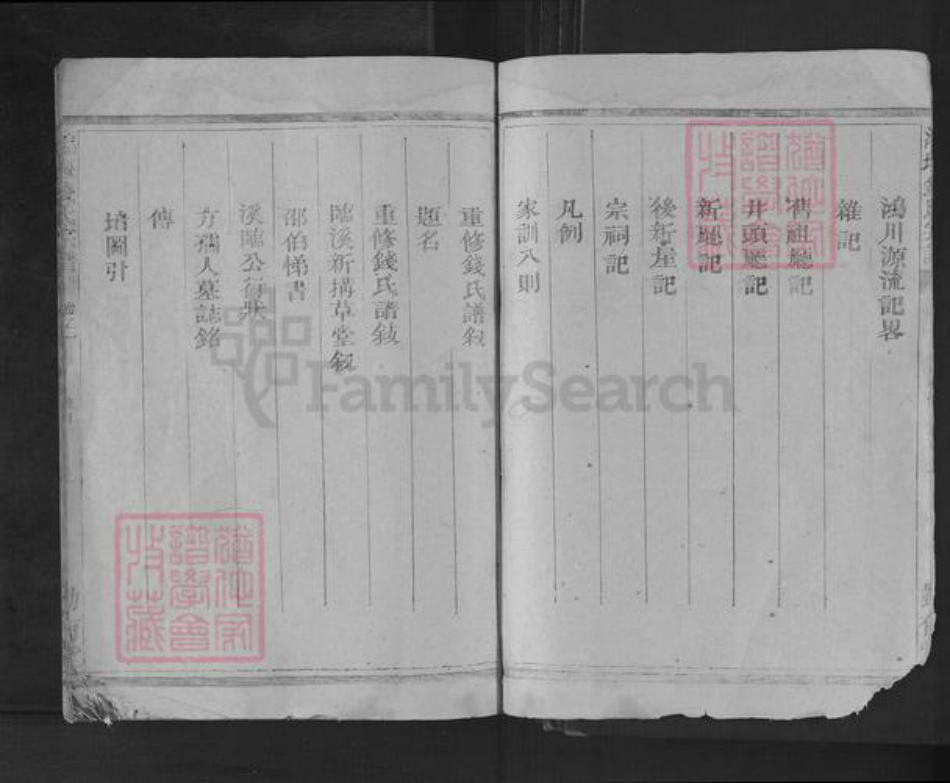 鴻川源流記畧
雜記
舊祖廳記
井頭廳記
新廳記
後新屋記
宗祠記
凡例
家訓八則
重修錢氏譜叙
題名
重修錢氏譜敍
臨溪新搆草堂叙
邵伯悌書
溪臨公行狀
方孺人墓誌銘
傳
塋圖引
FamilySearch